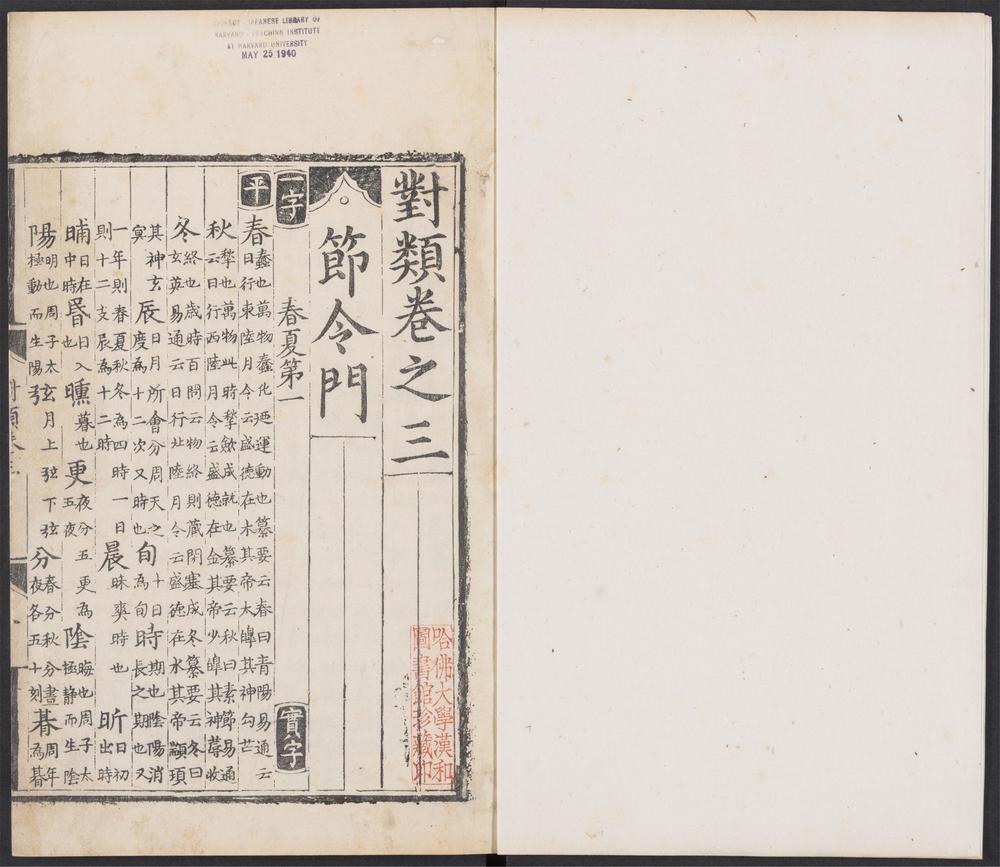 JAPANESE LIBRARY OF
HARVARD INSTITUTE
AT HARVARD UNIVERSITY
MAY 25 1940
對類卷之三
節令門
一字
春夏第一
實字
平
春蠢也萬物蠢化迺運動也纂要云春曰青陽易通云
日行東陸月令云盛德在木其帝太皥其神勾芒
秋揫也萬物此時揫歛成就也纂要云秋曰素節易通
云日行西陸月令云盛德在金其帝少皥其神蓐收
冬終也歲時百問云物終則藏閉塞成冬纂要云冬曰
玄英易通云日行北陸月令云盛德在水其帝顓頊
其神玄冥
辰日月所會分周天之度為十二次又時也
旬十日為旬
時期也陰陽消長之期也又
一年則春夏秋冬為四時一日則十二支辰為十二時
晨昧爽時也
昕日初出時
晡日在中時
昏日入也
曛暮也
更夜分五更為五夜
陰晦也周子太極靜而生陰
陽明也周子太極動而生陽
弦月上弦下弦
分春分秋分晝夜各五十刻
朞周年為朞
哈佛大學漢和
圖書館珍藏印